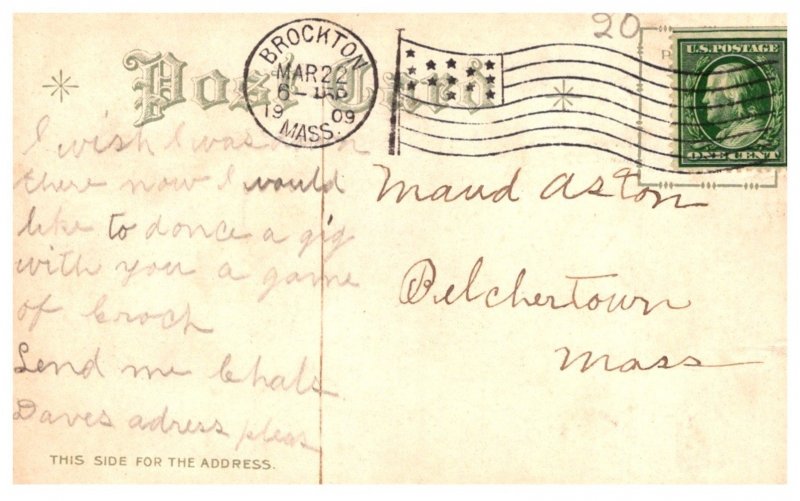 20
BROCKTON
MAR 22
6- 
1909
MASS.
Post Card
U.S. POSTAGE
ONE CENT
I wish I was
there now I would
like to donce a gig
with you a game
of Croch
Send me Chals
Daves adress pleas
Maud Aston
Belchertown
Mass
THIS SIDE FOR THE ADDRESS.